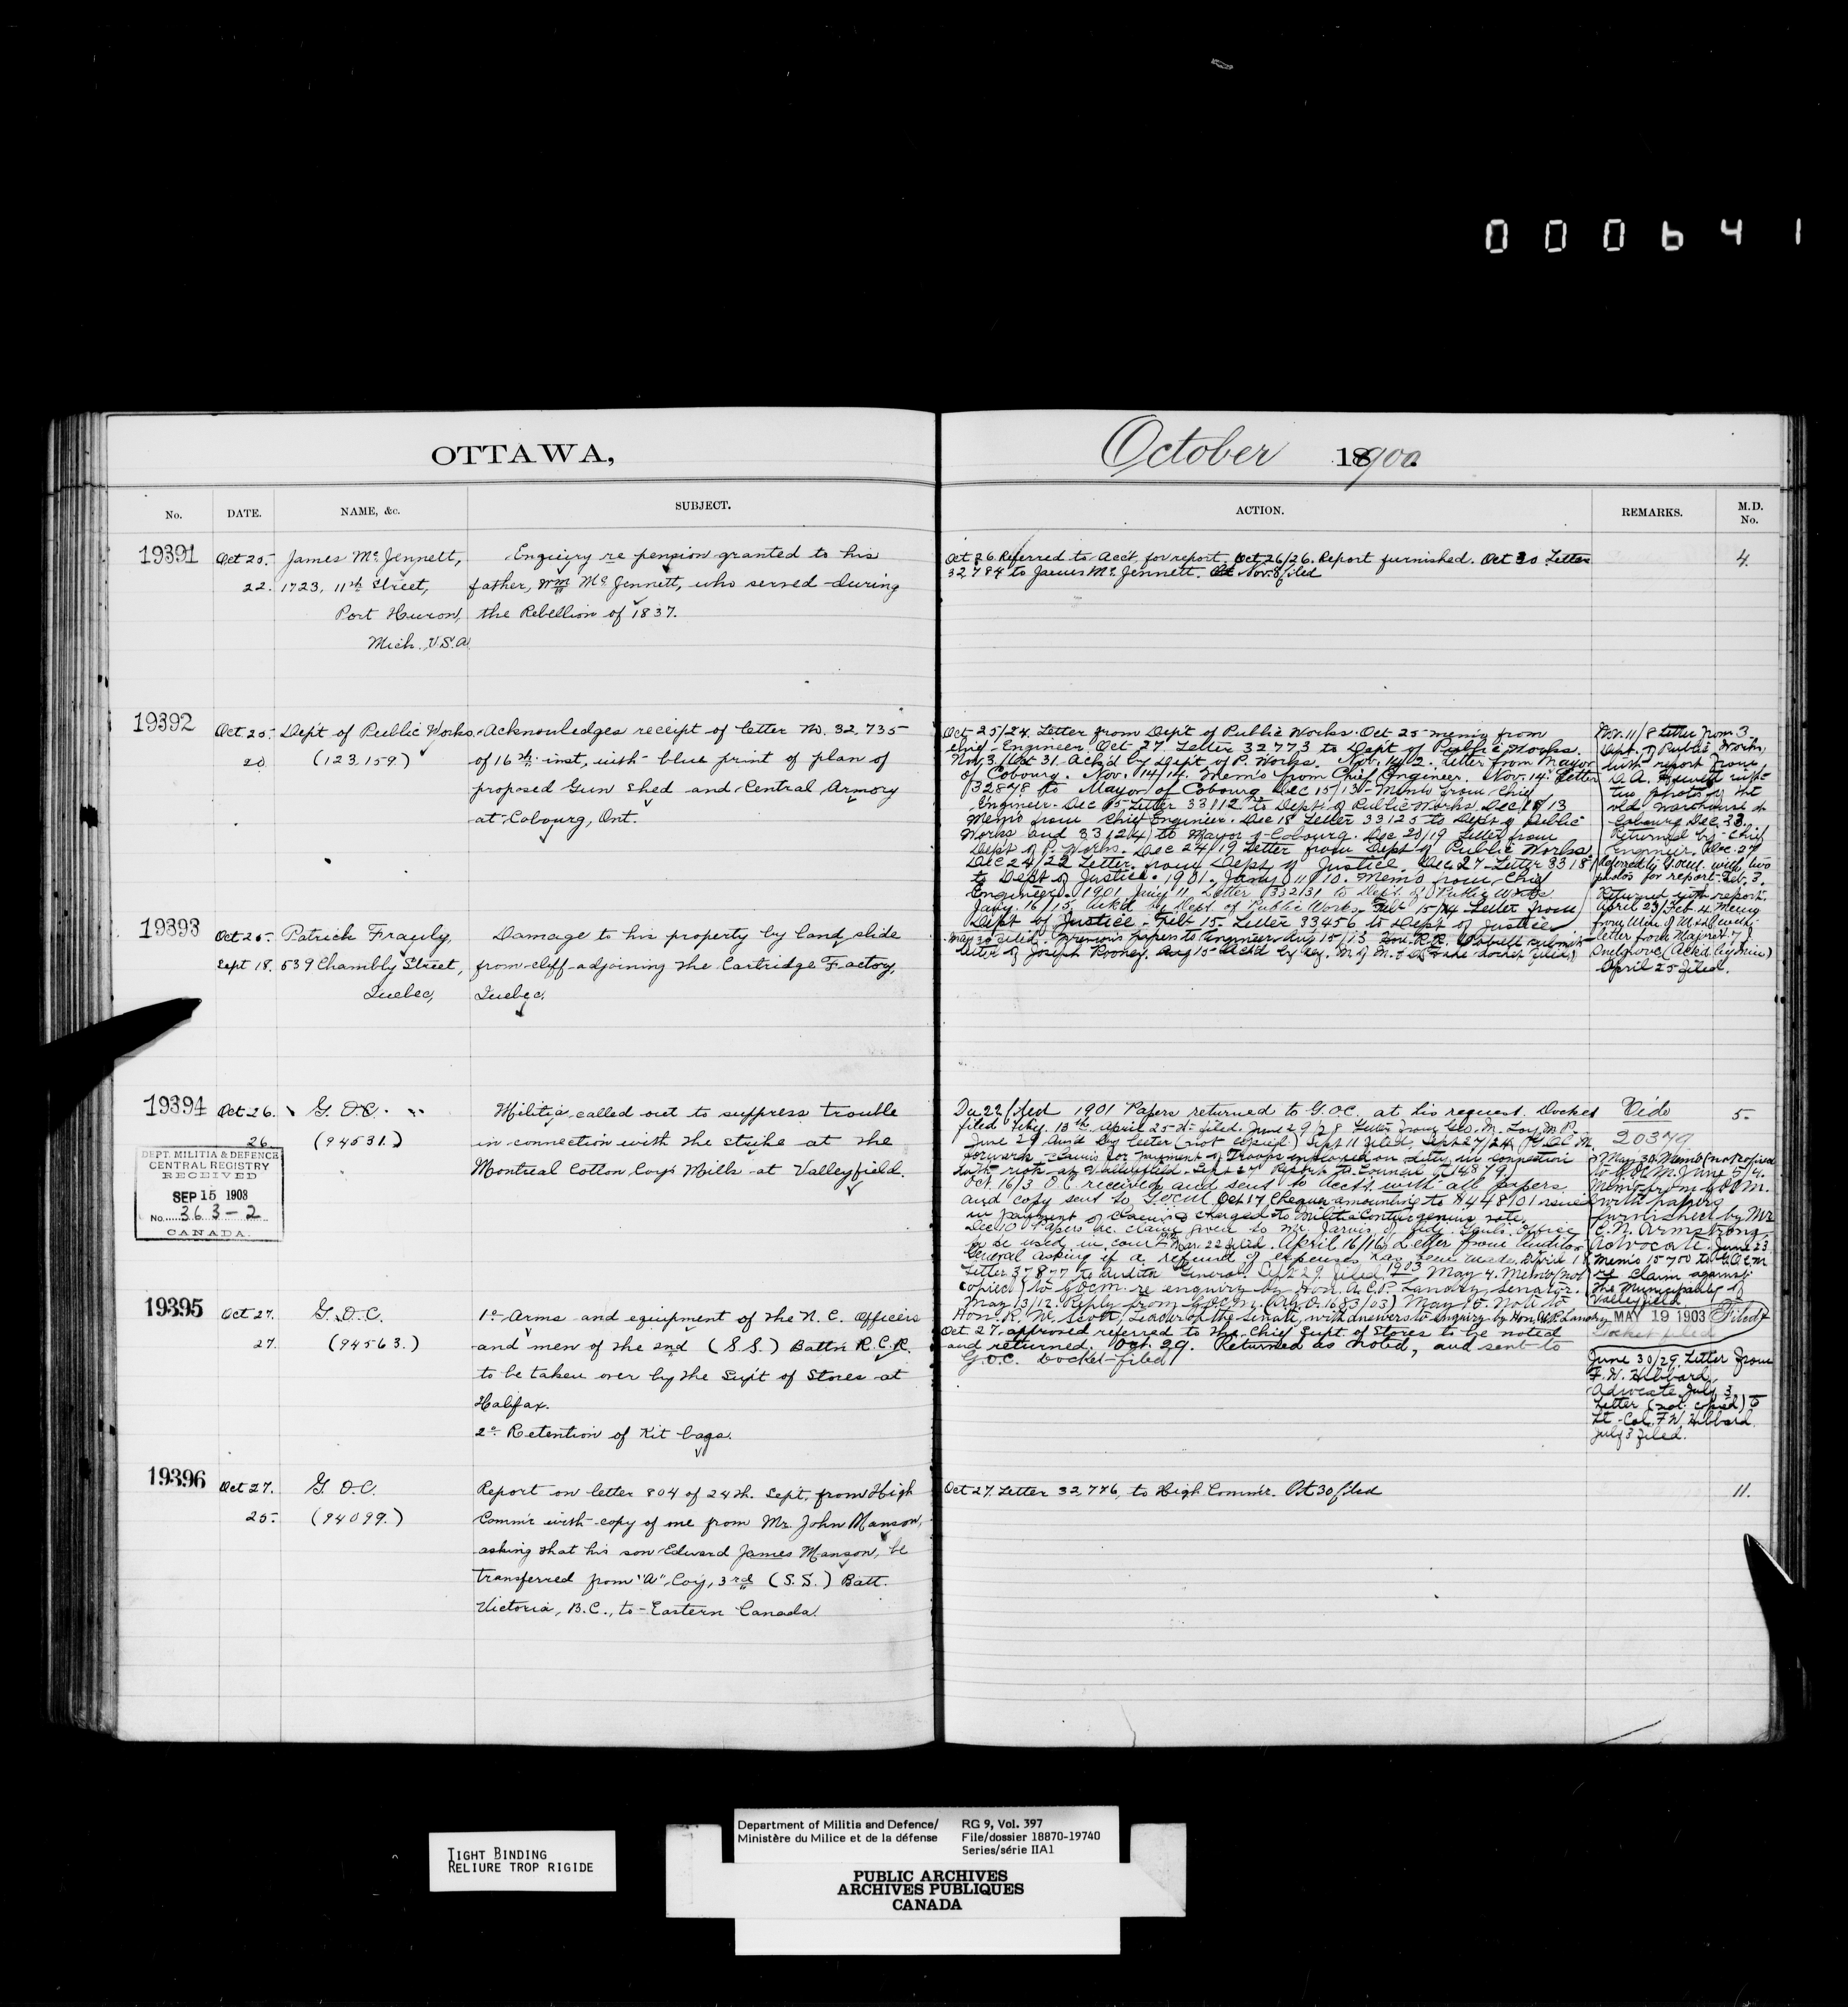 000641
OTTAWA,
No. DATE. NAME, &c. SUBJECT.
19391 Oct 25. James Mc Jennett, Enquiry re pension granted to his
22. 1723, 11th Street, father, Wm Mc Jennett, who served during
Port Huron, the Rebellion of 1837.
Mich., U.S.A.
19392 Oct 25. Dep't of Public Works. Acknowledges receipt of letter No. 32,735
20 (123,159) of 16th inst, with blue print of plan of
proposed Gun Shed and Central Armory
at Cobourg, Ont.
19393 Oct 25. Patrick Frauly, Damage to his property by land slide
Sept 18. 539 Chambly Street, from cliff adjoining the Cartridge Factory,
Quebec, Quebec.
19394 Oct 26. G.O.C. Militia called out to suppress trouble
26 (94531.) in connection with the strike at the
Montreal Cotton Coy's Mills at Valleyfield.
DEPT. MILITIA & DEFENCE
CENTRAL REGISTRY
RECEIVED
SEP 15 1903
No. 363-2
CANADA.
19395 Oct 27. G.O.C. 1o Arms and equipment of the N.C. Officers
27. (94563.) and men of the 2nd (S.S.) Battn R.C.R.
to be taken over by the Sup't of Stores at
Halifax.
2o Retention of Kit bags.
19396 Oct 27. G.O.C. Report on letter 804 of 24th Sept. from High
25. (94099.) Commr with copy of one from Mr. John Manson,
asking that his son Edward James Manson, be
transferred from "A" Coy, 3rd (S.S.) Batt.
Victoria, B.C., to Eastern Canada.
October 1900.
ACTION. REMARKS. M.D. No.
Oct 26. Referred to Acc't for report. Oct 26/26. Report furnished. Oct 30 Letter 4.
32,784 to James Mc Jennett. Nov. 8 filed
Oct 25/24. Letter from Dep't of Public Works. Oct 25 memo from
Chief Engineer. Oct 27. Letter 32773 to Dep't of Public Works.
Nov. 3/Oct 31. Ack'd by Dep't of P. Works. Nov. 14/12. Letter from Mayor
of Cobourg. Nov. 14/14. Memo from Chief Engineer. Nov. 14. Letter
32878 to Mayor of Cobourg. Dec 15/13. Memo from Chief
Engineer. Dec 15 Letter 33112 to Dept of Public Works. Dec 18/13
Memo from Chief Engineer. Dec 18 Letter 33125 to Dept of Public
Works and 33124 to Mayor of Cobourg. Dec 20/19 Letter from
Dept of P. Works. Dec 24/19 Letter from Dept of Public Works.
Dec 24/22 Letter from Dept of Justice. Dec 27 Letter 3318
to Dept of Justice. 1901. Jany 11/10. Memo from Chief
Engineer. 1901 Jany 11. Letter 33231 to Dept. of Public Works
Jany. 16/15. Ack'd by Dept. of Public Works. Feb 15/14 Letter from
Dept of Justice. Feb 15. Letter 33456 to Dept of Justice
May 30 filed. Previous papers to Engineer. Aug 15/13 Hon. R.R. Dobell
letter of Joseph Rooney. Aug 15 Ack'd by
Nov. 11/8 Letter from
Dept. of Public Works,
with report from
D.A. with
two photos of the
old warehouse at
Cobourg Dec. 23.
Returned by Chief
Engineer. Dec. 27
Referred to with two
photos for report. Feb. 3.
Returned with report.
April 23/Feb 4. Memo
from
letter from Major
April 25 filed.
Dec 22 filed 1901 Papers returned to G.O.C. at his request. Docket Vide 5
filed Feby. 13th April 25th filed. June 29/28 Letter from Geo. M. Loy M.P. 20379
June 29 Ans'd by letter (not copied) Sept 11 filed. Sept 27/24.
forwards claims for payment of Troops employed on duty in connection
with riot at Valleyfield. Sept 27 Report to Council (14879)
Oct. 16/3 O.C. received and sent to Acc't with all papers
and copy sent to G.O.C.M. Oct 17 Cheques amounting to $448/01
in payment of claims charged to Militia Contingencies vote.
Dec 10 Papers re. claim given to Mr. Jarvis of Office
to be used in court. Mar. 22 filed. April 16/16 Letter from Auditor
General asking if a refund of expenses has been made. April 18
Letter 37877 to Auditor General. Sept 29 filed. 1903 May 4. Memo (not
copied) to G.O.C.M. re enquiry by Hon. A.C.P. Landry, Senator.
May 13/12. Reply from G.O.C.M. May 15. Note to
Hon. R.W. Scott, Leader of the Senate, with answers to enquiry by Hon. Landry
May 30. Memo (not copied)
to G.O.C.M. June 5/4.
Memo from G.O.C.M.
with papers
furnished by Mr
C.N. Armstrong
advocate. June 23.
Memo 15700 to G.O.C.M
re claim against
the Municipality of
Valleyfield
MAY 19 1903 Filed
Docket filed
June 30/29. Letter from
F.W. Hibbard,
Advocate. July 3
Letter (not copied) to
Lt. Col. F.W. Hibbard.
July 3 filed.
Oct 27. approved referred to the Chief Supt of Stores to be noted
and returned. Oct. 29. Returned as noted, and sent to
G.O.C. Docket filed
Oct 27. Letter 32,776, to High Commr. Oct 30 filed 11.
TIGHT BINDING
RELIURE TROP RIGIDE
Department of Militia and Defence/ RG 9, Vol. 397
Ministère du Milice et de la défense File/dossier 18870-19740
Series/série IIA1
PUBLIC ARCHIVES
ARCHIVES PUBLIQUES
CANADA